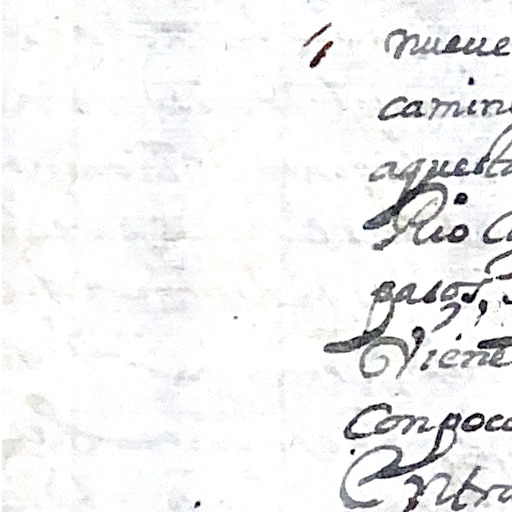 nueue
camin
aquest
Rio C
pasos,
Viene
Con poco
Entra